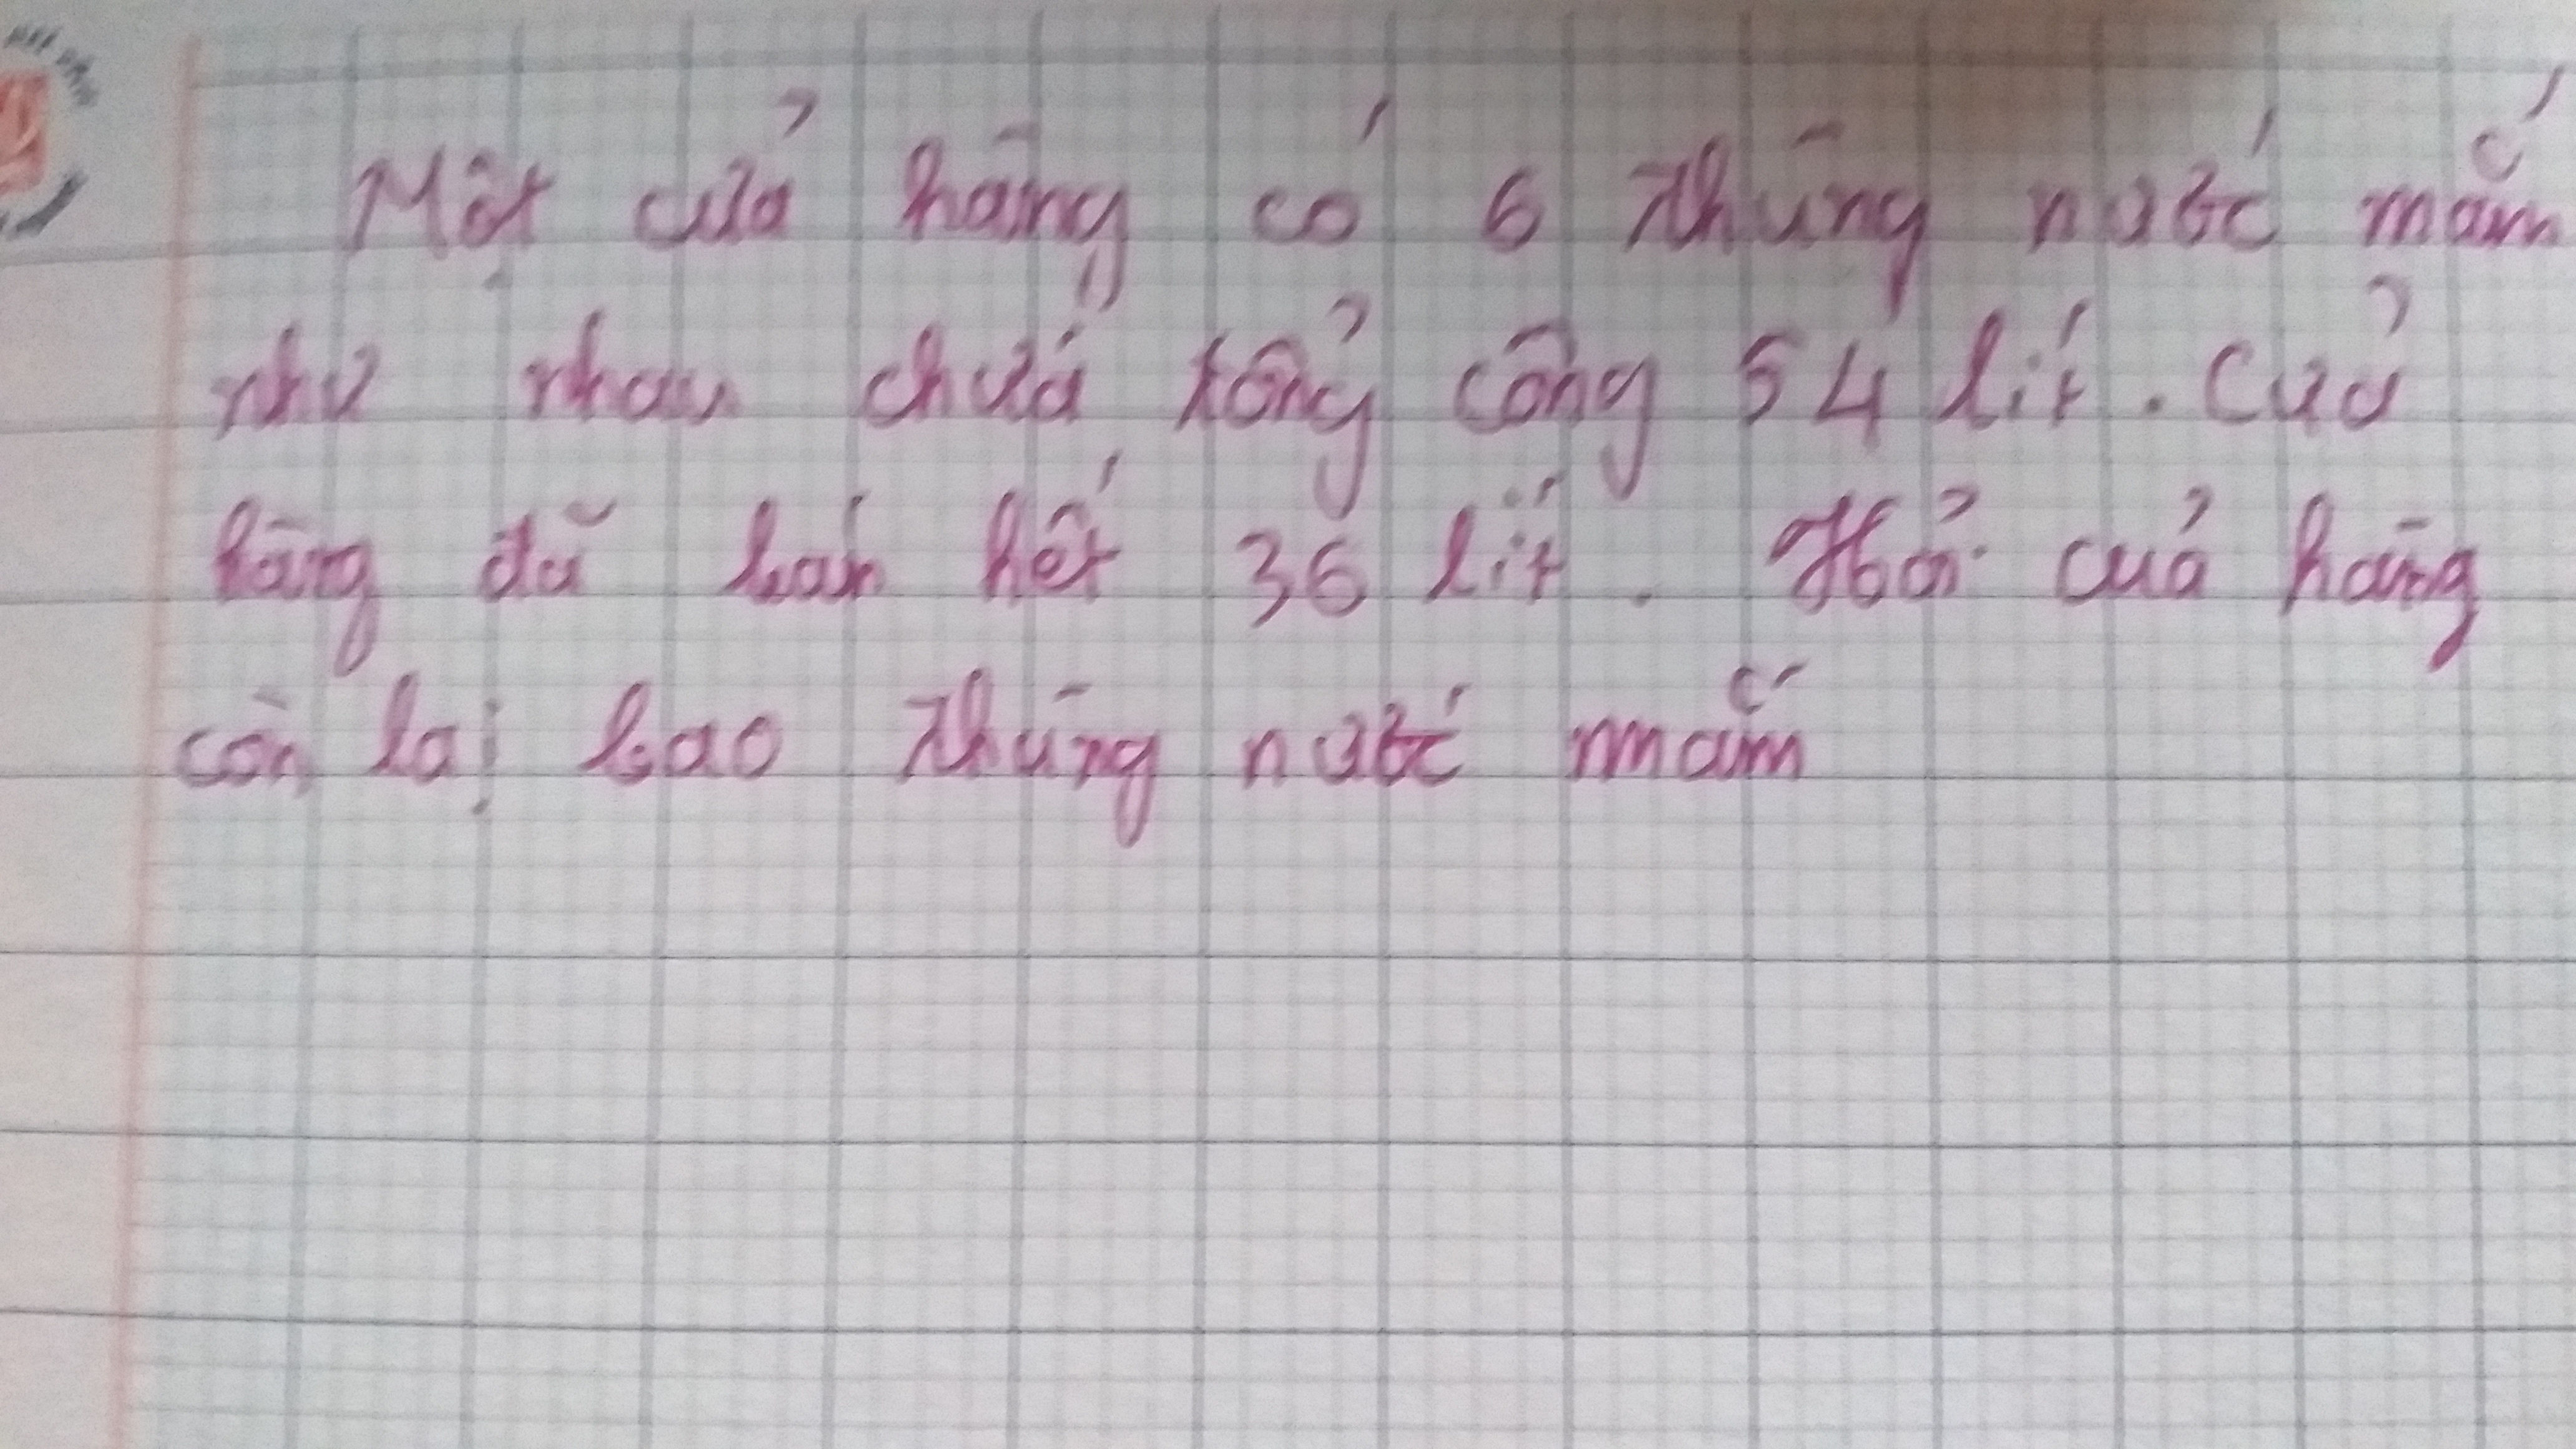 Một cửa hàng có 6 thùng nước mắm
như nhau chứa tổng cộng 54 lít. Cửa
hàng đã bán hết 36 lít. Hỏi cửa hàng
còn lại bao thùng nước mắm